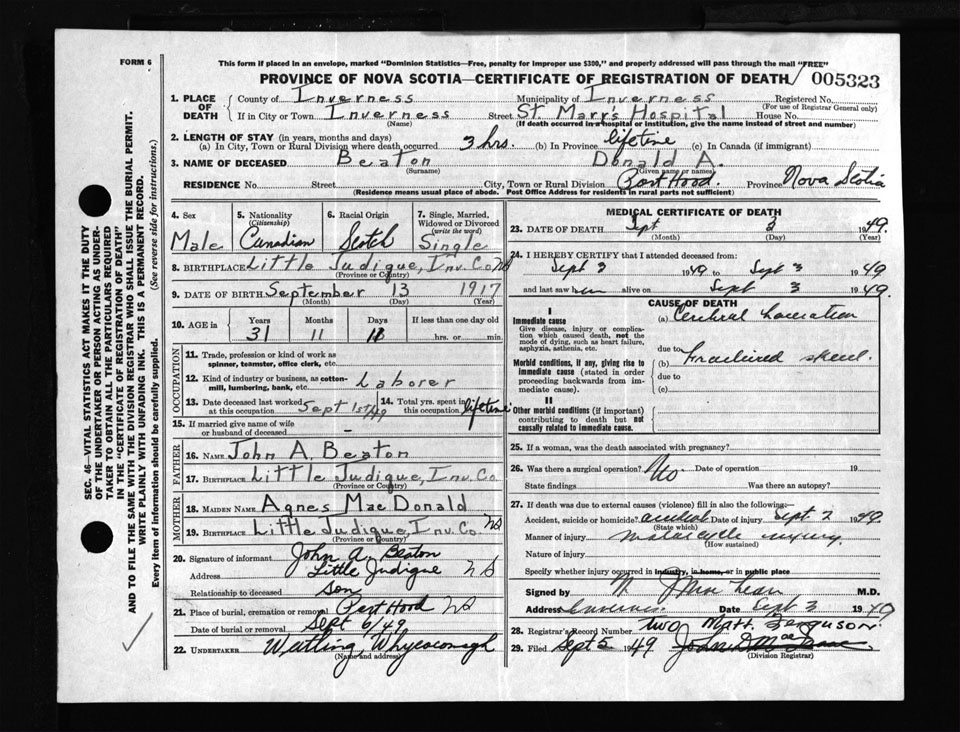 FORM 6
This form if placed in an envelope, marked "Dominion Statistics—Free, penalty for improper use $300," and properly addressed will pass through the mail "FREE"
PROVINCE OF NOVA SCOTIA—CERTIFICATE OF REGISTRATION OF DEATH 005323
SEC. 46—VITAL STATISTICS ACT MAKES IT THE DUTY
OF THE UNDERTAKER OR PERSON ACTING AS UNDER-
TAKER TO OBTAIN ALL THE PARTICULARS REQUIRED
IN THE "CERTIFICATE OF REGISTRATION OF DEATH"
AND TO FILE THE SAME WITH THE DIVISION REGISTRAR WHO SHALL ISSUE THE BURIAL PERMIT.
WRITE PLAINLY WITH UNFADING INK. THIS IS A PERMANENT RECORD.
Every item of information should be carefully supplied. (See reverse side for instructions.)
1. PLACE OF DEATH County of Inverness Municipality of Inverness Registered No.
(For use of Registrar General only)
If in City or Town Inverness Street St. Mary's Hospital House No.
(Name) (If death occurred in a hospital or institution, give the name instead of street and number)
2. LENGTH OF STAY (in years, months and days)
(a) In City, Town or Rural Division where death occurred 3 hrs. (b) In Province lifetime (c) In Canada (if immigrant)
3. NAME OF DECEASED Beaton Donald A.
(Surname) (Given name or names)
RESIDENCE No. Street City, Town or Rural Division Port Hood. Province Nova Scotia
(Residence means usual place of abode. Post Office Address for residents in rural parts not sufficient)
4. Sex 5. Nationality (Citizenship) 6. Racial Origin 7. Single, Married, Widowed or Divorced (write the word)
Male Canadian Scotch Single
8. BIRTHPLACE Little Judique, Inv. Co. NS
(Province or Country)
9. DATE OF BIRTH September 13 1917
(Month) (Day) (Year)
10. AGE in Years Months Days If less than one day old
31 11 hrs. or min.
OCCUPATION
11. Trade, profession or kind of work as
spinner, teamster, office clerk, etc.
12. Kind of industry or business, as cotton-
mill, lumbering, bank, etc. Laborer
13. Date deceased last worked at this occupation Sept 1st/49 14. Total yrs. spent in this occupation lifetime
15. If married give name of wife
or husband of deceased –
FATHER
16. NAME John A. Beaton
17. BIRTHPLACE Little Judique, Inv. Co.
(Province or Country)
MOTHER
18. MAIDEN NAME Agnes MacDonald
19. BIRTHPLACE Little Judique, Inv. Co. NS
(Province or Country)
20. Signature of informant John A. Beaton
Address Little Judique NS
Relationship to deceased son
21. Place of burial, cremation or removal Port Hood NS
Date of burial or removal Sept 6/49
22. UNDERTAKER Whycocomagh
(Name and address)
MEDICAL CERTIFICATE OF DEATH
23. DATE OF DEATH Sept 3 1949.
(Month) (Day) (Year)
24. I HEREBY CERTIFY that I attended deceased from:
Sept 3 1949 to Sept 3 1949
and last saw him alive on Sept 3 1949.
CAUSE OF DEATH
I
Immediate cause (a) Cerebral Laceration
Give disease, injury or complica-
tion which caused death, not the
mode of dying, such as heart failure,
asphyxia, asthenia, etc.
due to
(b) Fractured skull.
Morbid conditions, if any, giving rise to
immediate cause (stated in order
proceeding backwards from im-
mediate cause).
due to
(c)
II
Other morbid conditions (if important)
contributing to death but not
causally related to immediate cause.
25. If a woman, was the death associated with pregnancy?
26. Was there a surgical operation? No Date of operation 19
State findings Was there an autopsy?
27. If death was due to external causes (violence) fill in also the following:—
Accident, suicide or homicide? accident Date of injury Sept. 2 1949.
(State which)
Manner of injury motorcycle injury.
(How sustained)
Nature of injury
Specify whether injury occurred in industry, in home, or in public place
Signed by N. J. MacLean M.D.
Address Inverness. Date Sept 3 1949
28. Registrar's Record Number two Matt. Ferguson.
29. Filed Sept 5 1949
(Division Registrar)